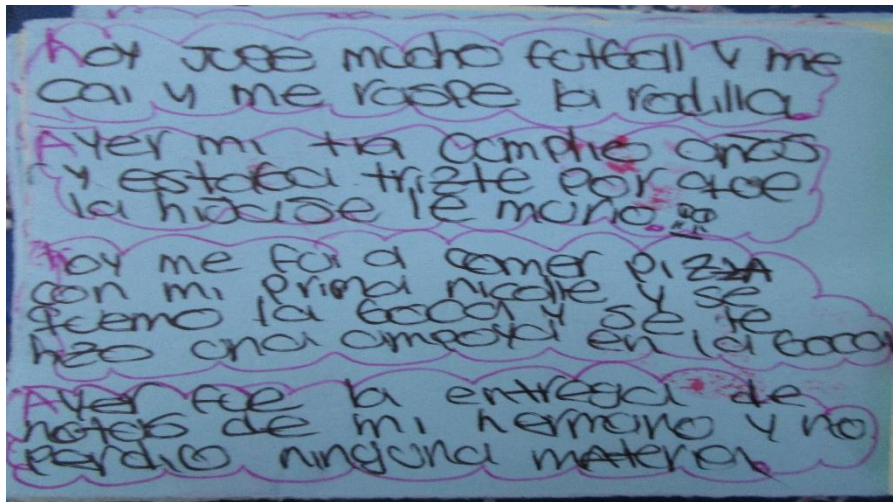 Hoy juge mucho futball y me
cai y me raspe la rodilla.
Ayer mi tia cumplio años
y estaba trizte por que
la hija se le murio.
Hoy me fui a comer pizza
con mi prima nicolle y se
quemo la boca y se le
hizo una ampoya en la boca
Ayer fue la entrega de
notas de mi hermano y no
perdio ninguna materia.